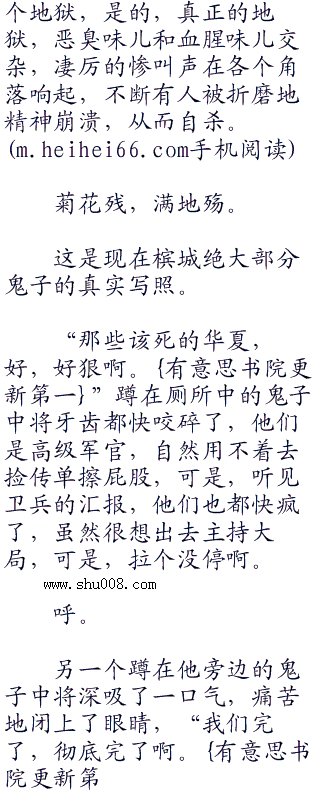 个地狱，是的，真正的地
狱，恶臭味儿和血腥味儿交
杂，凄厉的惨叫声在各个角
落响起，不断有人被折磨地
精神崩溃，从而自杀。
(m.heihei66.com手机阅读)
菊花残，满地殇。
这是现在槟城绝大部分
鬼子的真实写照。
“那些该死的华夏，
好，好狠啊。{有意思书院更
新第一}”蹲在厕所中的鬼子
中将牙齿都快咬碎了，他们
是高级军官，自然用不着去
捡传单擦屁股，可是，听见
卫兵的汇报，他们也都快疯
了，虽然很想出去主持大
局，可是，拉个没停啊。
www.shu008.com
呼。
另一个蹲在他旁边的鬼
子中将深吸了一口气，痛苦
地闭上了眼睛，“我们完
了，彻底完了啊。{有意思书
院更新第